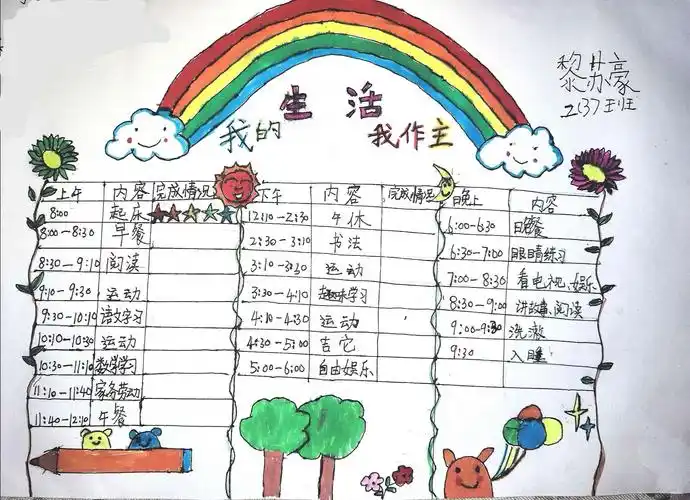 生 活
我的 我作主
黎苏豪
2(37)班
上午 内容 完成情况
8:00 起床
8:00-8:30 早餐
8:30-9:10 阅读
9:10-9:30 运动
9:30-10:10 语文学习
10:10-10:30 运动
10:30-11:10 数学学习
11:10-11:40 家务劳动
11:40-12:10 午餐
下午 内容 完成情况
12:10-2:30 午休
2:30-3:10 书法
3:10-3:30 运动
3:30-4:10 趣味学习
4:10-4:30 运动
4:30-5:00 吉它
5:00-6:00 自由娱乐
晚上 内容
6:00-6:30 晚餐
6:30-7:00 眼睛练习
7:00-8:30 看电视、娱乐
8:30-9:00 讲故事、阅读
9:00-9:30 洗漱
9:30 入睡